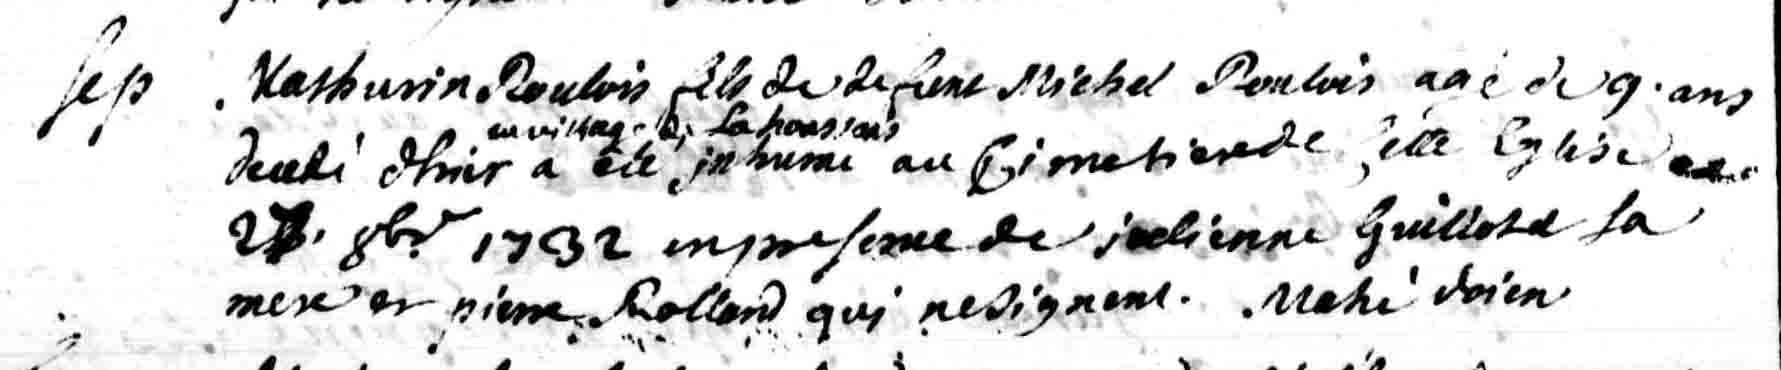 sep
Mathurin Roulois fils de defunt Michel Roulois agé de 9. ans
au village de la houssais
decedé d'hier a été inhumé au Cimetiere de cette Eglise
8br. 1732 en presence de julienne Guillotel sa
mere et pierre Rolland qui ne signent. Mahé doien